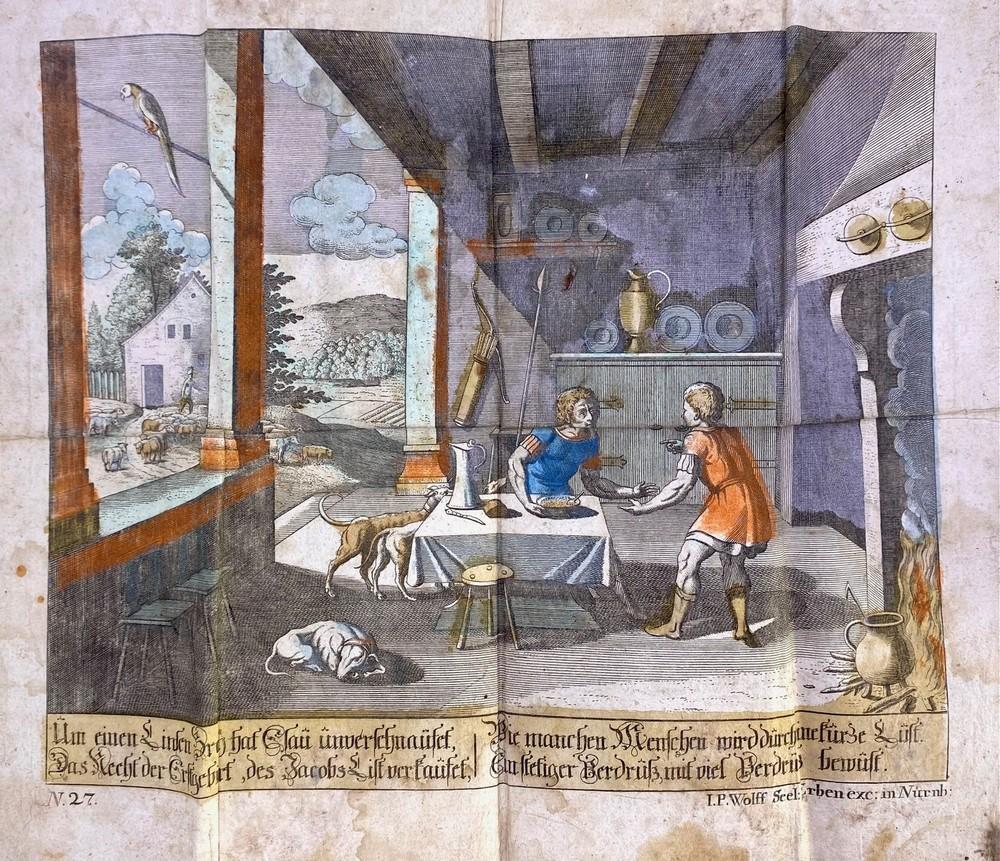 Um einen Linsen Brey hat Esaü ünverschnaüfet,
Das Recht der Erstgebürt, des Jacobs List verkaüfet,
Wie manchen Menschen wird dürch eine kürße Lüst.
Ein stetiger Verdrüß, mit viel Verdrüß bewüst.
N. 27.
I.P. Wolff Seel: Erben exc: in Nürnb: